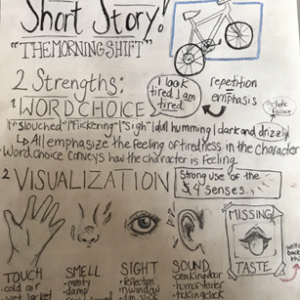 Short Story!
"THE MORNING SHIFT"
2 Strengths:
I look
tired. I am
tired.
repetition
emphasis
1 WORD CHOICE
"slouched" "flickering" "sigh" dull humming dark and drizzly
All emphasize the feeling of tiredness in the character
Word choice conveys how the character is feeling.
2 VISUALIZATION
Strong use of the
4 senses.
MISSING
TASTE
TOUCH
cold air
wet jacket
SMELL
musty
damp
SIGHT
reflection
in window
SOUND
creaking door
ticking clock